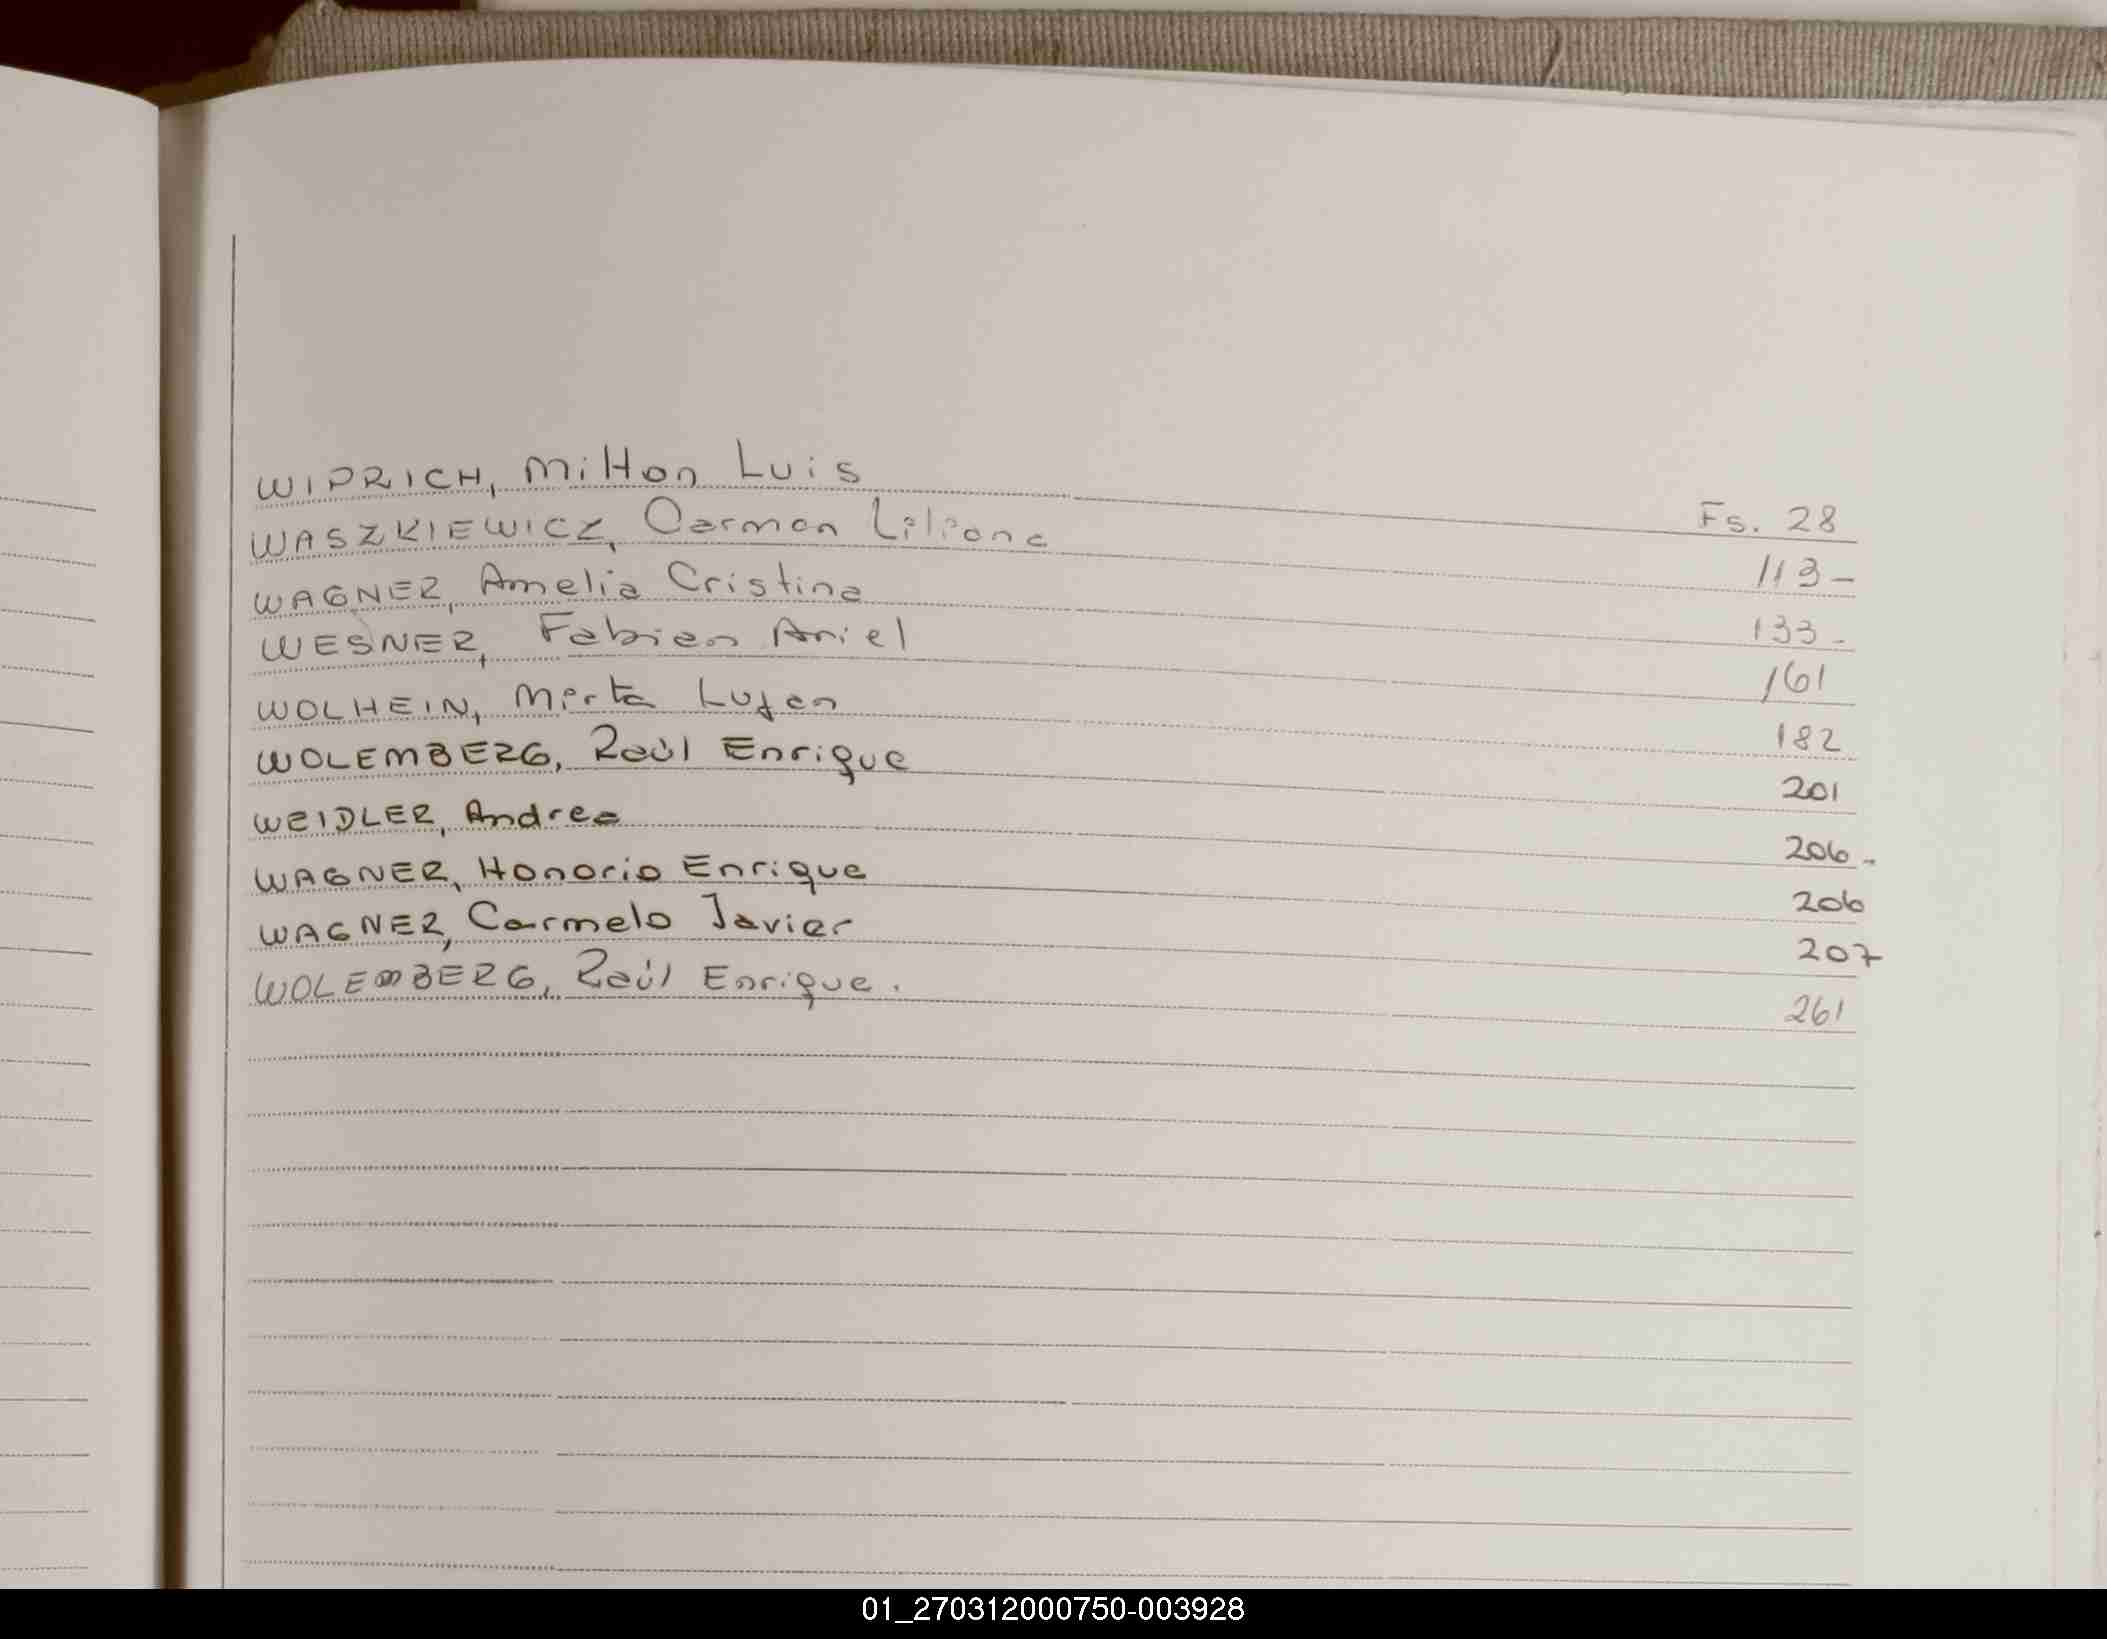 WIPRICH, Milton Luis Fs. 28
WASZKIEWICZ, Carmen Liliana 113-
WAGNER, Amelia Cristina 133-
WESNER, Fabian Ariel 161
WOLHEIN, Mirta Lujan 182
WOLEMBERG, Raúl Enrique 201
WEIDLER, Andrea 206-
WAGNER, Honorio Enrique 206
WAGNER, Carmelo Javier 207
WOLEMBERG, Raúl Enrique. 261
01_270312000750-003928